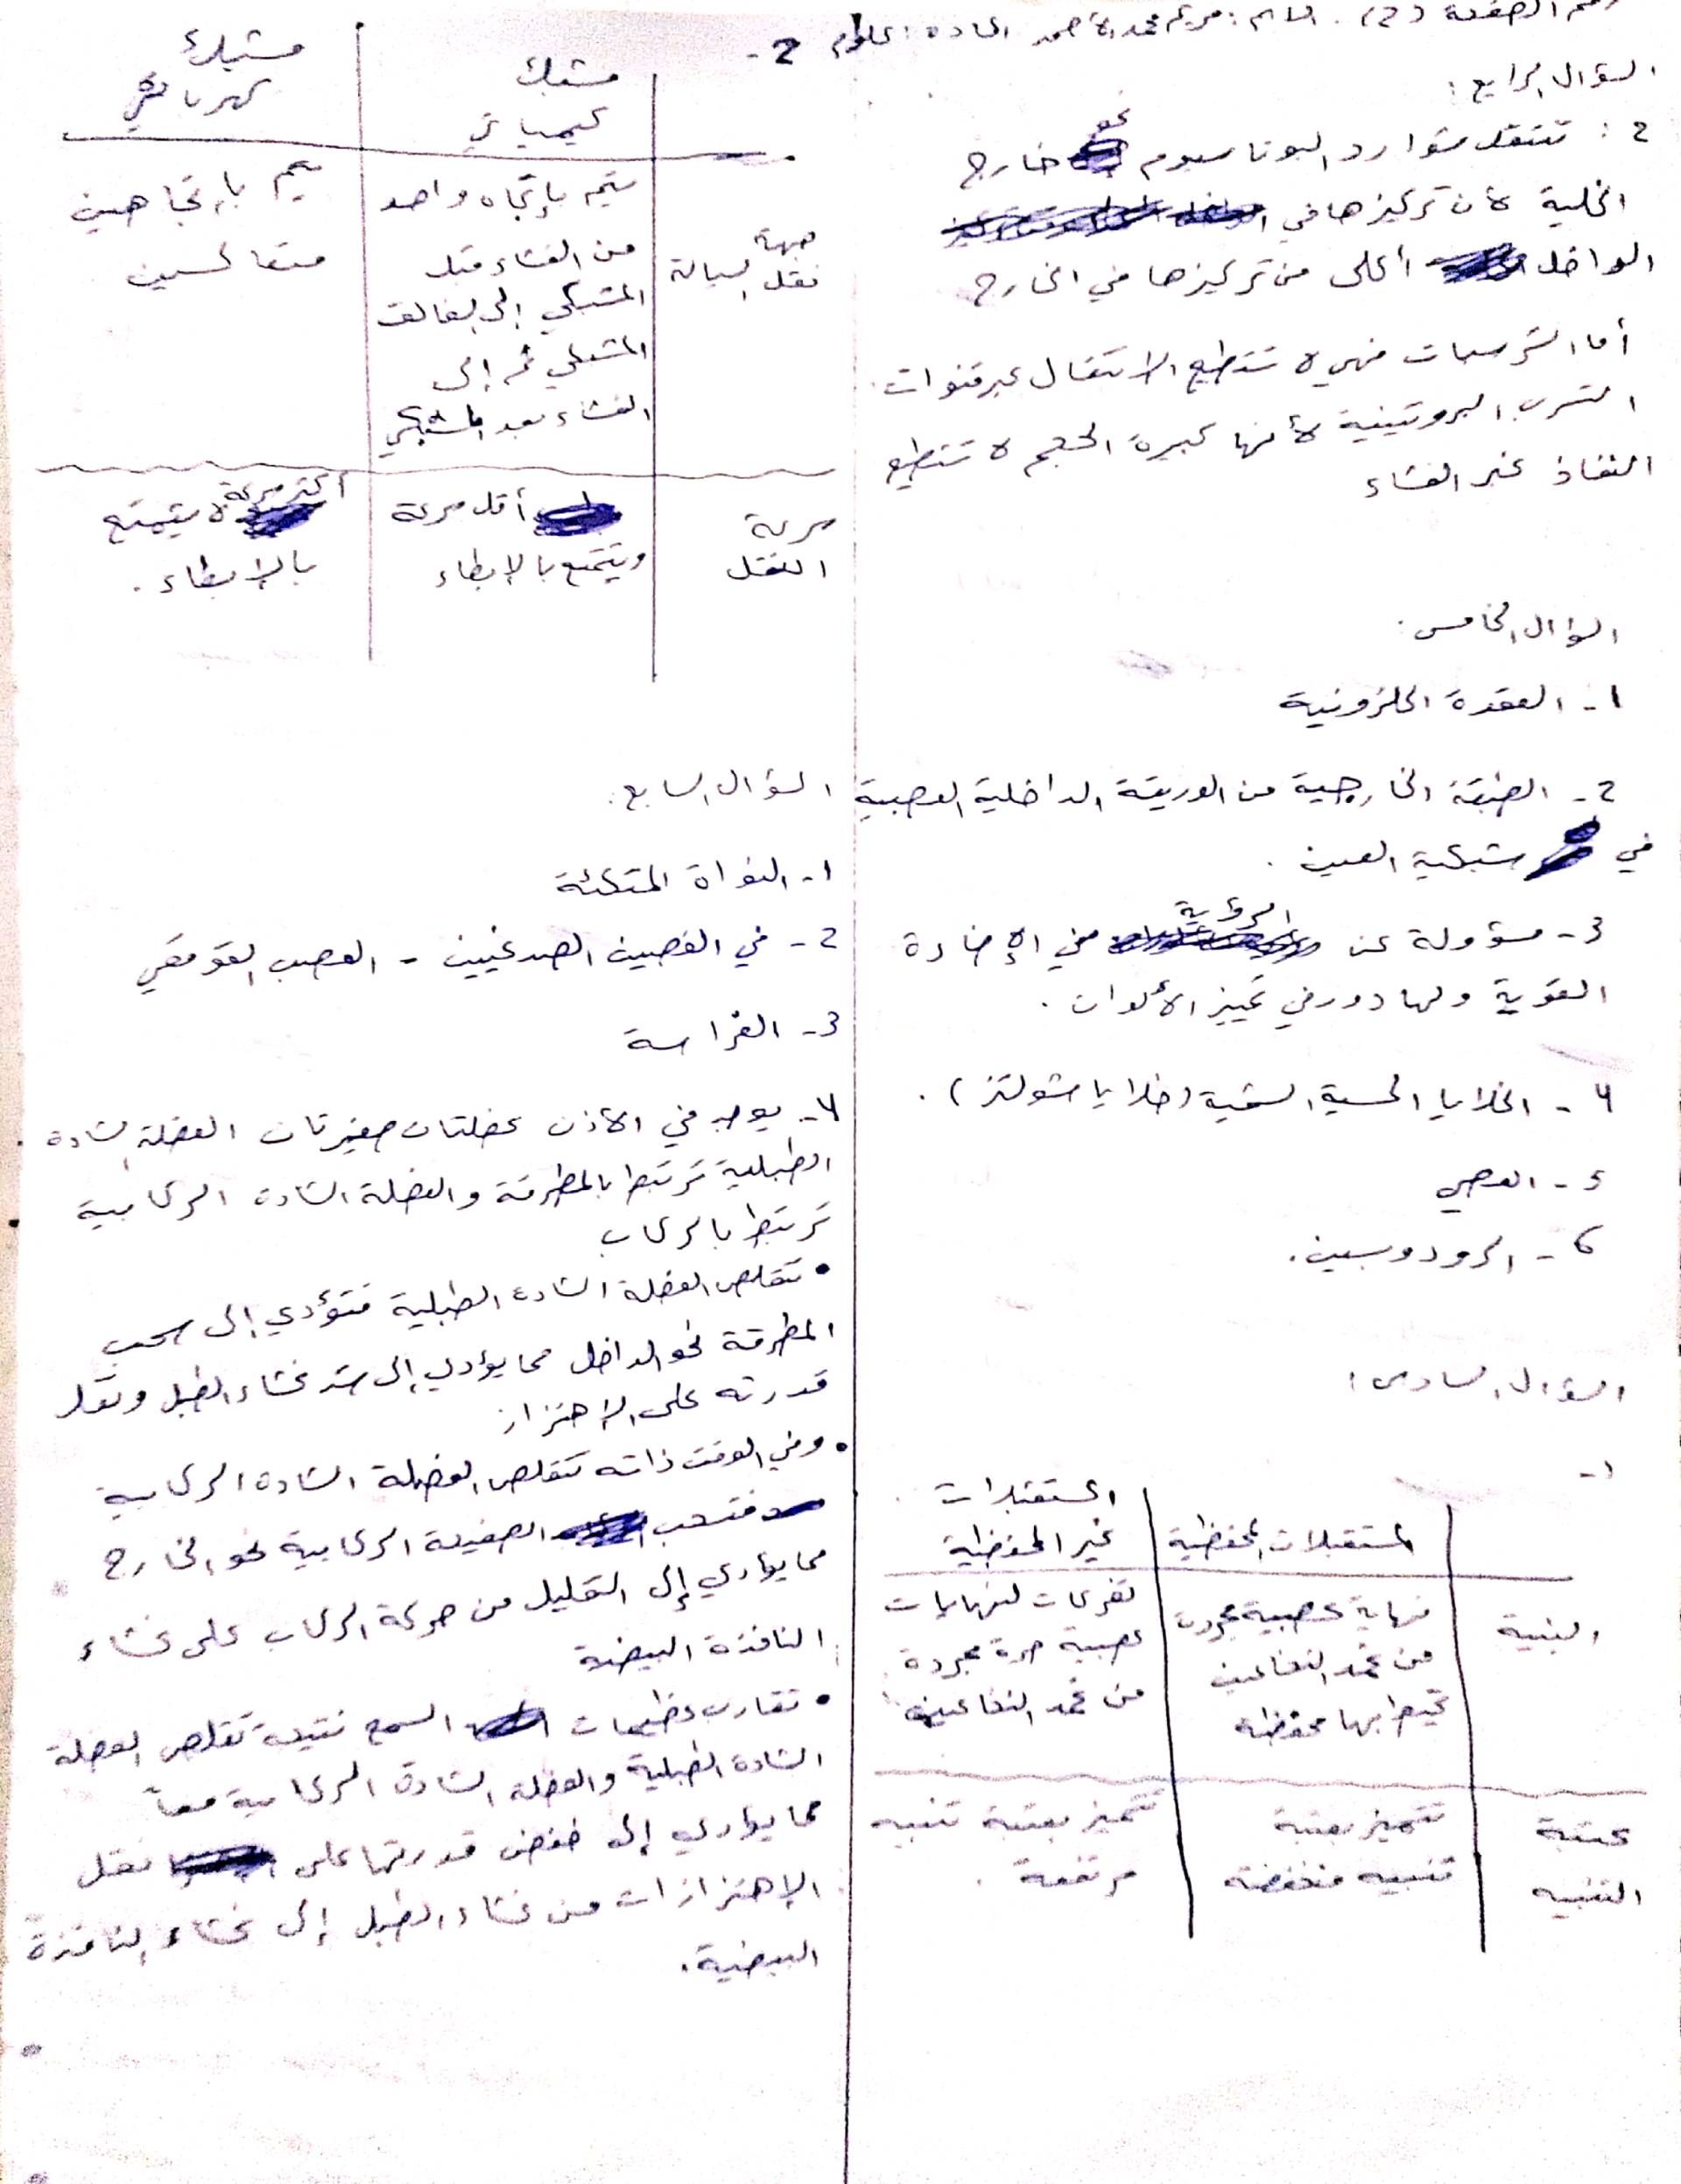 رقم الصفحة (2). الاسم: مريم محمد الأحمد المادة: علوم
السؤال الرابع:
2: تنتقل شوارد البوتاسيوم نحو خارج
الخلية لأن تركيزها في
الداخل أعلى من تركيزها في الخارج
أما الشرسبات فهي لا تستطيع الانتقال عبر قنوات
التسرب البروتينية لأنها كبيرة الحجم لا تستطيع
النفاذ عبر الغشاء
السؤال الخامس:
1- العقدة الحلزونية
2- الطبقة الخارجية من الوريقة الداخلية العصبية
في شبكية العين.
3- مسؤولة عن الرؤية في الإضاءة
القوية ولها دور في تمييز الألوان.
4- الخلايا الحسية الشمية (خلايا شولتز).
5- العصي
6- الرودوبسين.
السؤال السادس:
1-
المستقبلات المحفظية
المستقبلات
غير المحفظية
البنية
نهاية عصبية مجردة
من غمد النخاعين
تحيط بها محفظة
تفرعات لنهايات
عصبية حرة مجردة
من غمد النخاعين
عتبة
التنبيه
تتميز بعتبة
تنبيه منخفضة
تتميز بعتبة تنبيه
مرتفعة.
2-
مشبك
كيميائي
مشبك
كهربائي
جهة
نقل السيالة
يتم بإتجاه واحد
من الغشاء قبل
المشبكي إلى الفالق
المشبكي ثم إلى
الغشاء بعد المشبكي
يتم بإتجاهين
متعاكسين
سرعة
النقل
أقل سرعة
ويتمتع بالإبطاء
أكثر سرعة
لا يتمتع
بالإبطاء.
السؤال السابع:
1- النواة المتكئة
2- في الفصين الصدغيين - العصب القوقعي
3- الفراسة
4- يوجد في الأذن عضلتان صغيرتان العضلة الشادة
الطبلية ترتبط بالمطرقة والعضلة الشادة الركابية
ترتبط بالركاب
• تتقلص العضلة الشادة الطبلية فتؤدي إلى سحب
المطرقة نحو الداخل مما يؤدي إلى شد غشاء الطبل وتقل
قدرته على الإهتزاز
• وفي الوقت ذاته تتقلص العضلة الشادة الركابية
فتسحب الصفيحة الركابية نحو الخارج
مما يؤدي إلى التقليل من حركة الركاب على غشاء
النافذة البيضية
• تقارب عظيمات السمع نتيجة تقلص العضلة
الشادة الطبلية والعضلة الشادة الركابية معاً
مما يؤدي إلى خفض قدرتها على نقل
الإهتزازات من غشاء الطبل إلى غشاء النافذة
البيضية.